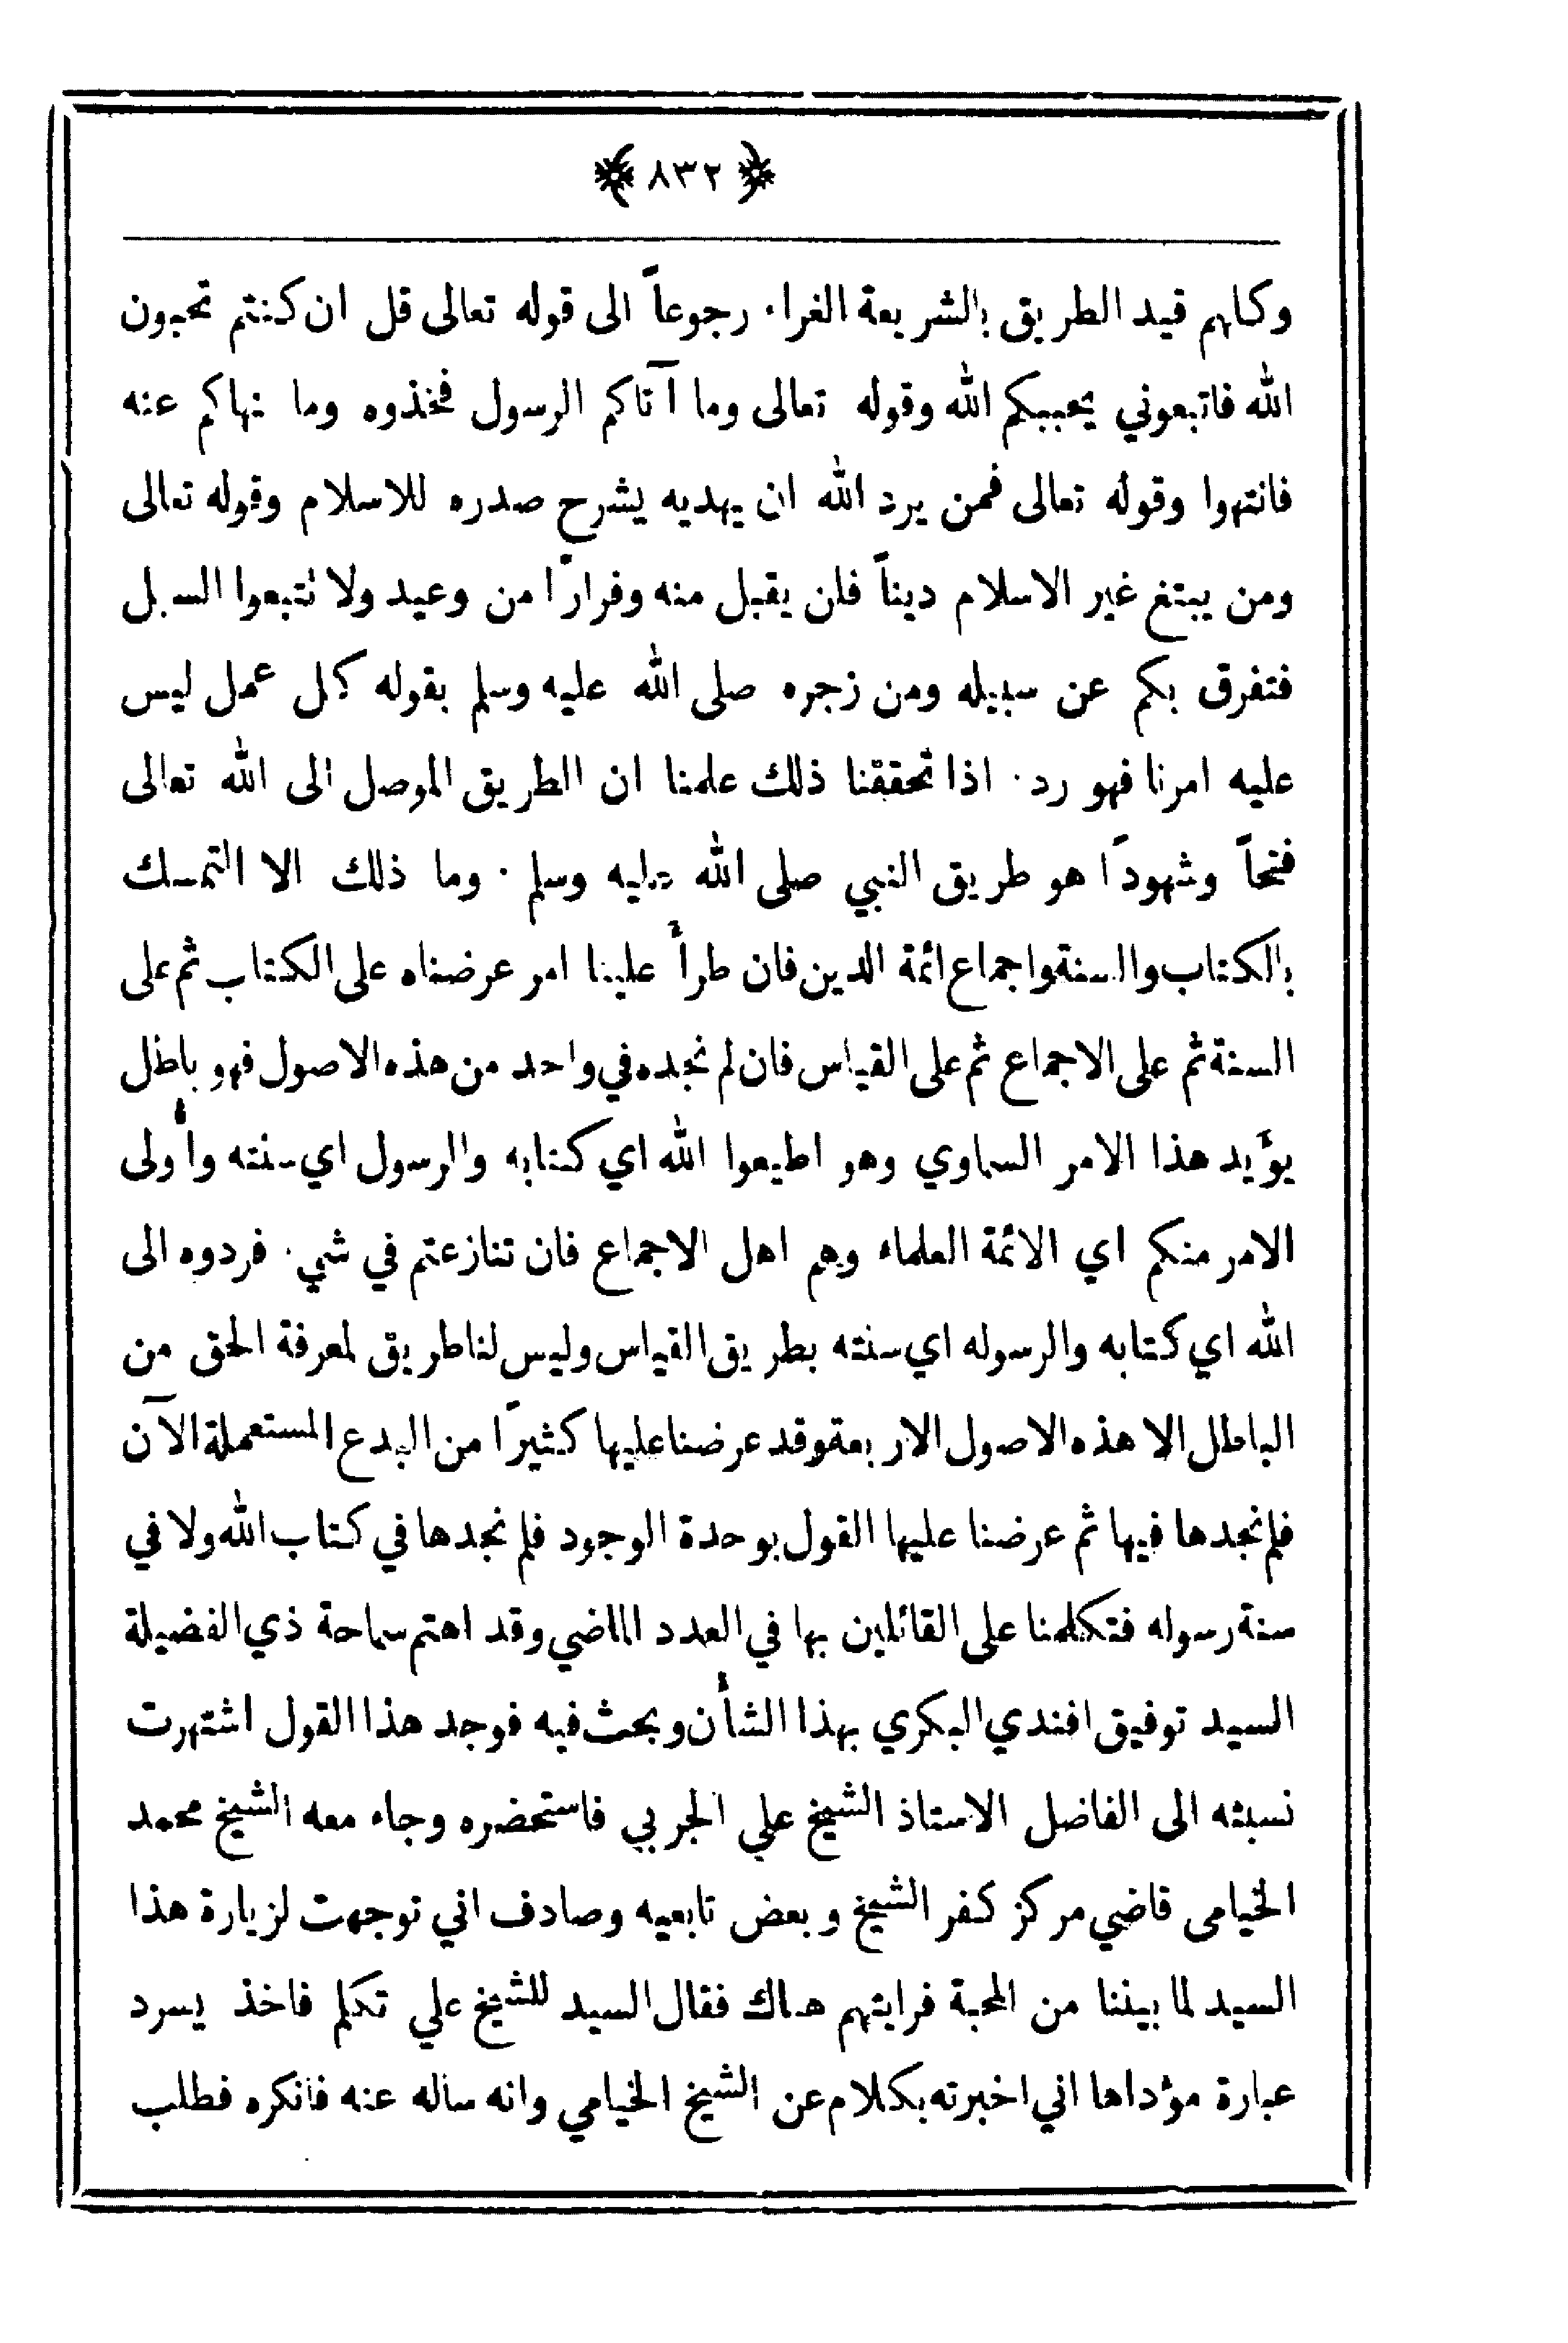 ﴿ ٨٣٢ ﴾
وكلهم قيد الطريق بالشريعة الغراء رجوعاً الى قوله تعالى قل ان كنتم تحبون
الله فاتبعوني يحببكم الله وقوله تعالى وما آتاكم الرسول فخذوه وما نهاكم عنه
فانتهوا وقوله تعالى فمن يرد الله ان يهديه يشرح صدره للاسلام وقوله تعالى
ومن يبتغ غير الاسلام ديناً فلن يقبل منه وفراراً من وعيد ولا نتبعوا السبل
فتفرق بكم عن سبيله ومن زجره صلى الله عليه وسلم بقوله كل عمل ليس
عليه امرنا فهو رد . اذا تحققنا ذلك علمنا ان الطريق الموصل الى الله تعالى
فتحاً وشهوداً هو طريق النبي صلى الله عليه وسلم . وما ذلك الا التمسك
بالكتاب والسنة واجماع ائمة الدين فان طرأ علينا امر عرضناه على الكتاب ثم على
السنة ثم على الاجماع ثم على القياس فان لم نجده في واحد من هذه الاصول فهو باطل
يؤيد هذا الامر السماوي وهو اطيعوا الله اي كتابه والرسول اي سنته وأولى
الامر منكم اي الائمة العلماء وهم اهل الاجماع فان تنازعتم في شيء فردوه الى
الله اي كتابه والرسوله اي سنته بطريق القياس وليس لنا طريق لمعرفة الحق من
الباطل الا هذه الاصول الاربعة وقد عرضنا عليها كثيراً من البدع المستعملة الآن
فلم نجدها فيها ثم عرضنا عليها القول بوحدة الوجود فلم نجدها في كتاب الله ولا في
سنة رسوله فتكلمنا على القائلين بها في العدد الماضي وقد اهتم سماحة ذي الفضيلة
السيد توفيق افندي البكري بهذا الشأن وبحث فيه فوجد هذا القول اشتهرت
نسبته الى الفاضل الاستاذ الشيخ علي الجربي فاستحضره وجاء معه الشيخ محمد
الخيامى قاضي مركز كفر الشيخ وبعض تابعيه وصادف اني توجهت لزيارة هذا
السيد لما بيننا من المحبة فرايتهم هناك فقال السيد للشيخ علي تكلم فاخذ يسرد
عبارة مؤداها اني اخبرته بكلام عن الشيخ الخيامي وانه سأله عنه فانكره فطلب